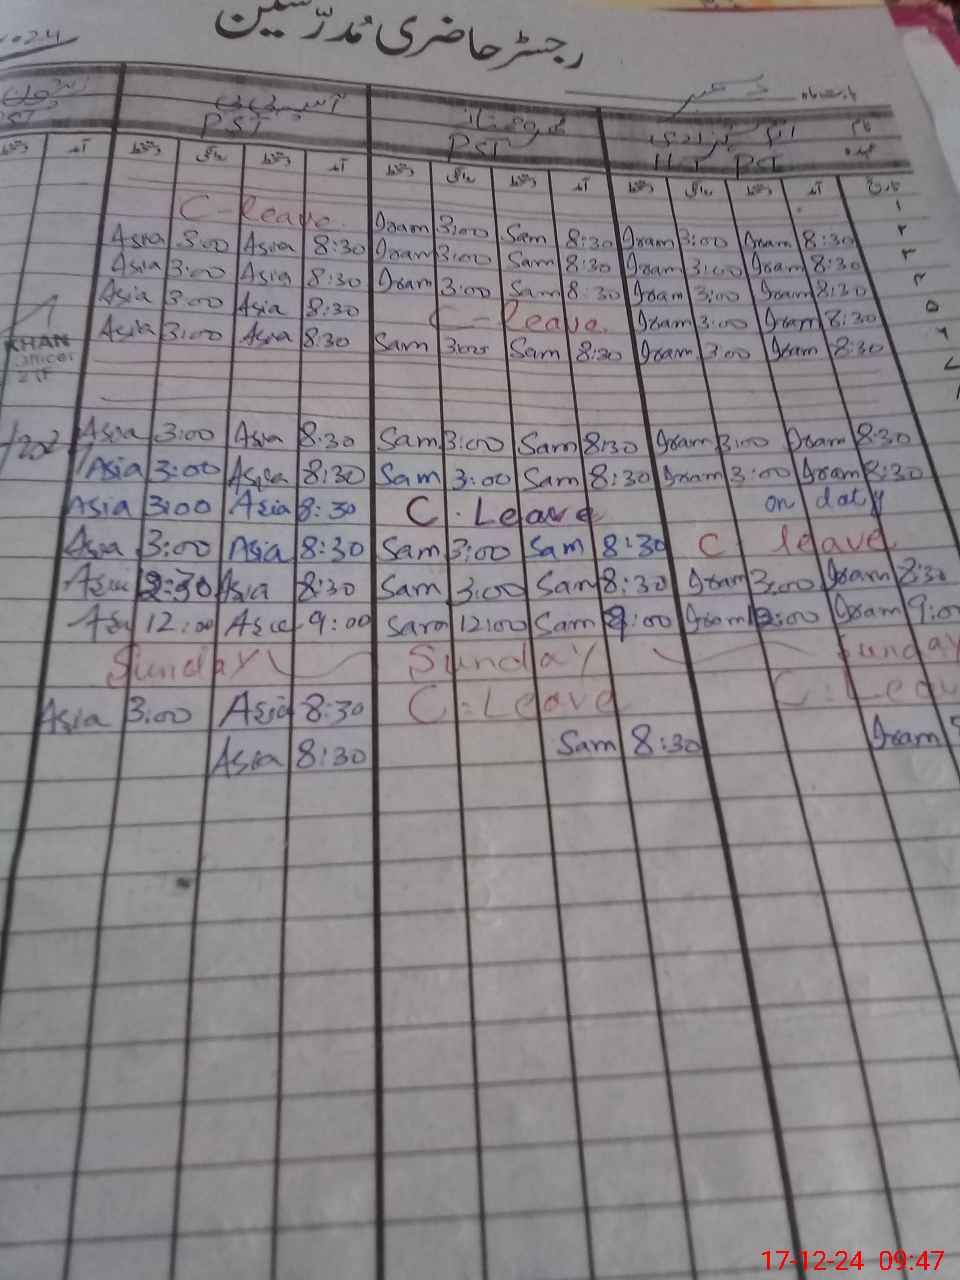 رجسٹر حاضری مُدرّسین
2024
بابت ماہ دسمبر
نام
عہدہ
PST PST PST
تاریخ آمد دستخط روانگی دستخط آمد دستخط روانگی دستخط آمد دستخط روانگی دستخط آمد
۱
C-leave Iram 3:00 Sam 8:30 Iram 3:00 Iram 8:30 ۲
Asia 3:00 Asia 8:30 Iram 3:00 Sam 8:30 Iram 3:00 Iram 8:30 ۳
Asia 3:00 Asia 8:30 Iram 3:00 Sam 8:30 Iram 3:00 Iram 8:30
Asia 3:00 Asia 8:30 C-leave Iram 3:00 Iram 8:30 ۵
Asia 3:00 Asia 8:30 Sam 3:00 Sam 8:30 Iram 3:00 Iram 8:30 ۶
KHAN
Officer
Asia 3:00 Asia 8:30 Sam 3:00 Sam 8:30 Iram 3:00 Iram 8:30
Asia 3:00 Asia 8:30 Sam 3:00 Sam 8:30 Iram 3:00 Iram 8:30
Asia 3:00 Asia 8:30 C. Leave on daty
Asia 3:00 Asia 8:30 Sam 3:00 Sam 8:30 C leave
Asia 2:30 Asia 8:30 Sam 3:00 Sam 8:30 Iram 3:00 Iram 8:30
Asia 12:00 Asia 9:00 Sam 12:00 Sam 9:00 Iram 12:00 Iram 9:00
Sunday Sunday Sunday
Asia 3:00 Asia 8:30 C.Leave C.Leav
Asia 8:30 Sam 8:30 Iram
17-12-24 09:47